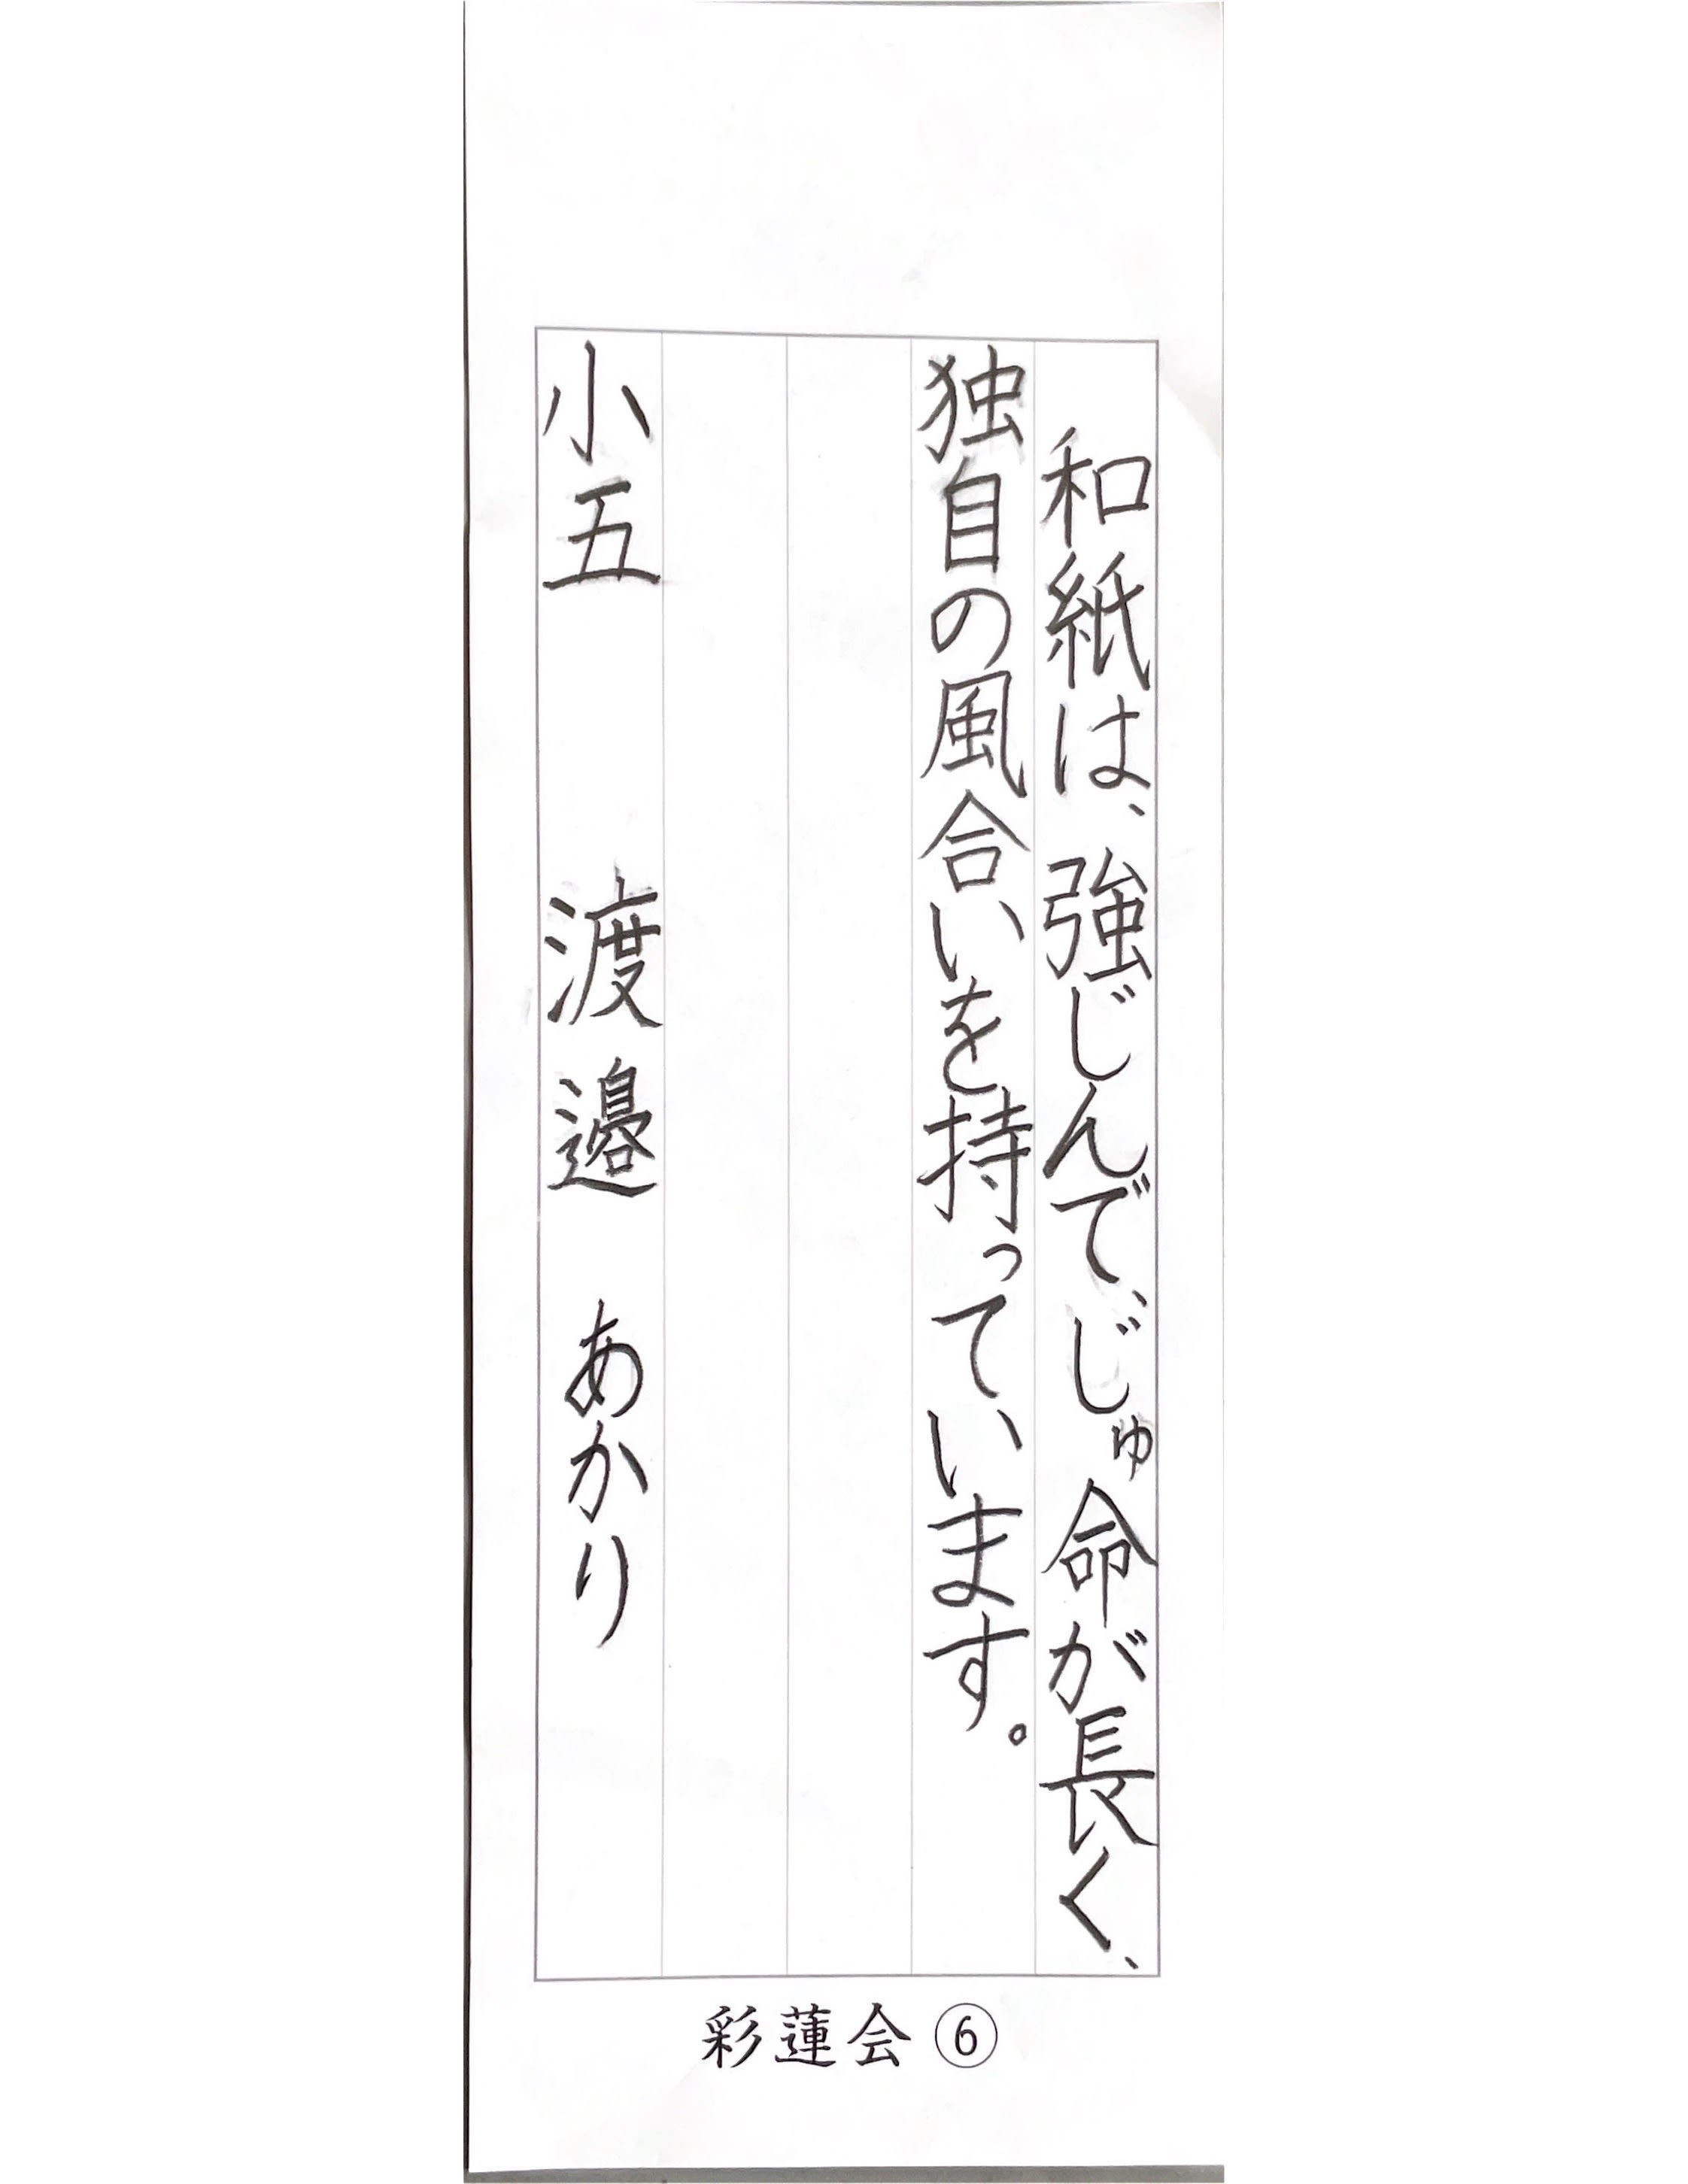 和紙は、強じんで、じゅ命が長く、
独自の風合いを持っています。
小五　渡邉　あかり
彩蓮会⑥